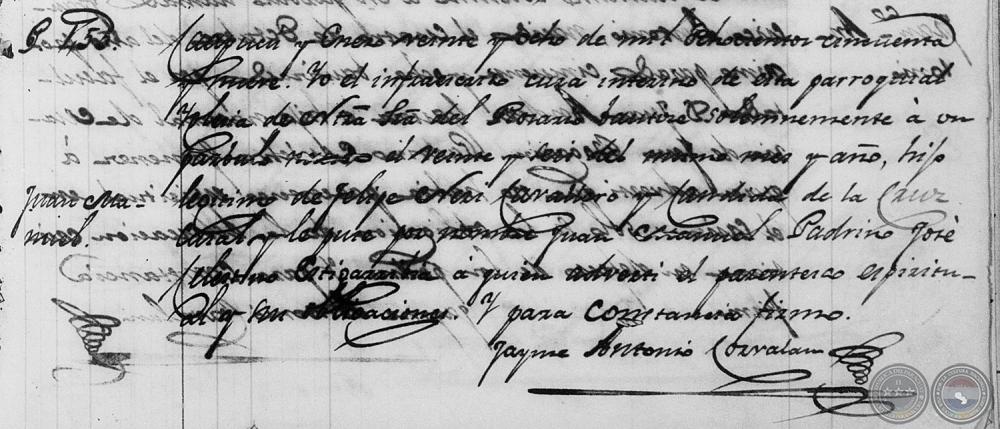 P. 153.
Caapucu y Enero veinte y ocho de mil Ochocientos cincüenta
y nueve. Yo el infrascrito cura interino de esta parroquial
Yglesia de Ntrã Srã del Rosario bautizé Solemnemente â un
parbulo nacido el veinte y seis del mismo mes y año, hijo
Juan Ma-
nuel
legitimo de Felipe Neri Cavallero y Candida de la Cruz
y le puse por nombre Juan Manuel. Padrino José
Estigarribia â quien adverti el parentesco espiritu-
al y sus obligaciones. Y para Constancia firmo.
Jayme Antonio Corvalan